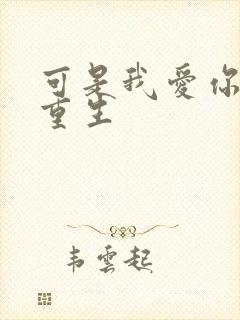 可是我愛你
重生
韦雲起